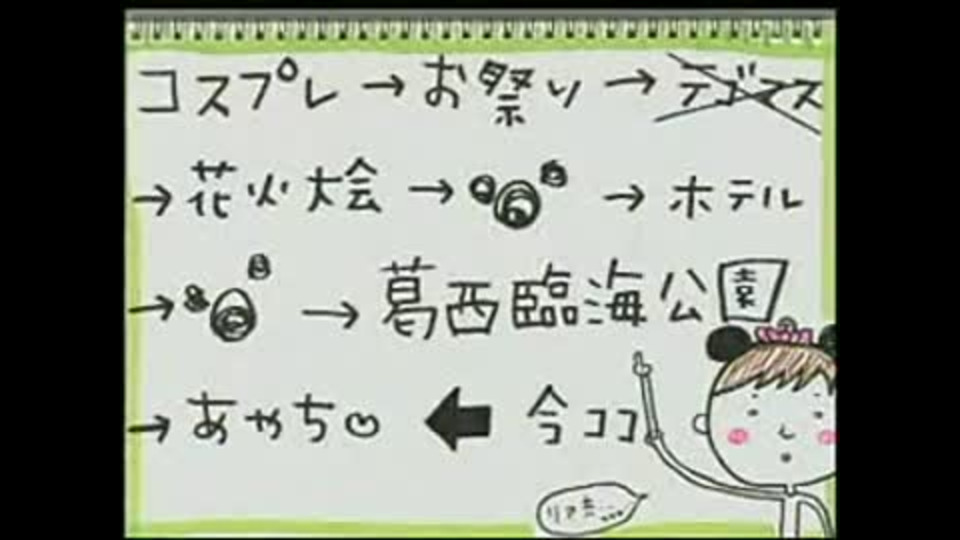 コスプレ→お祭り→テゴマス
→花火大会→→ホテル
→→葛西臨海公園
→あやち♡ ← 今ココ